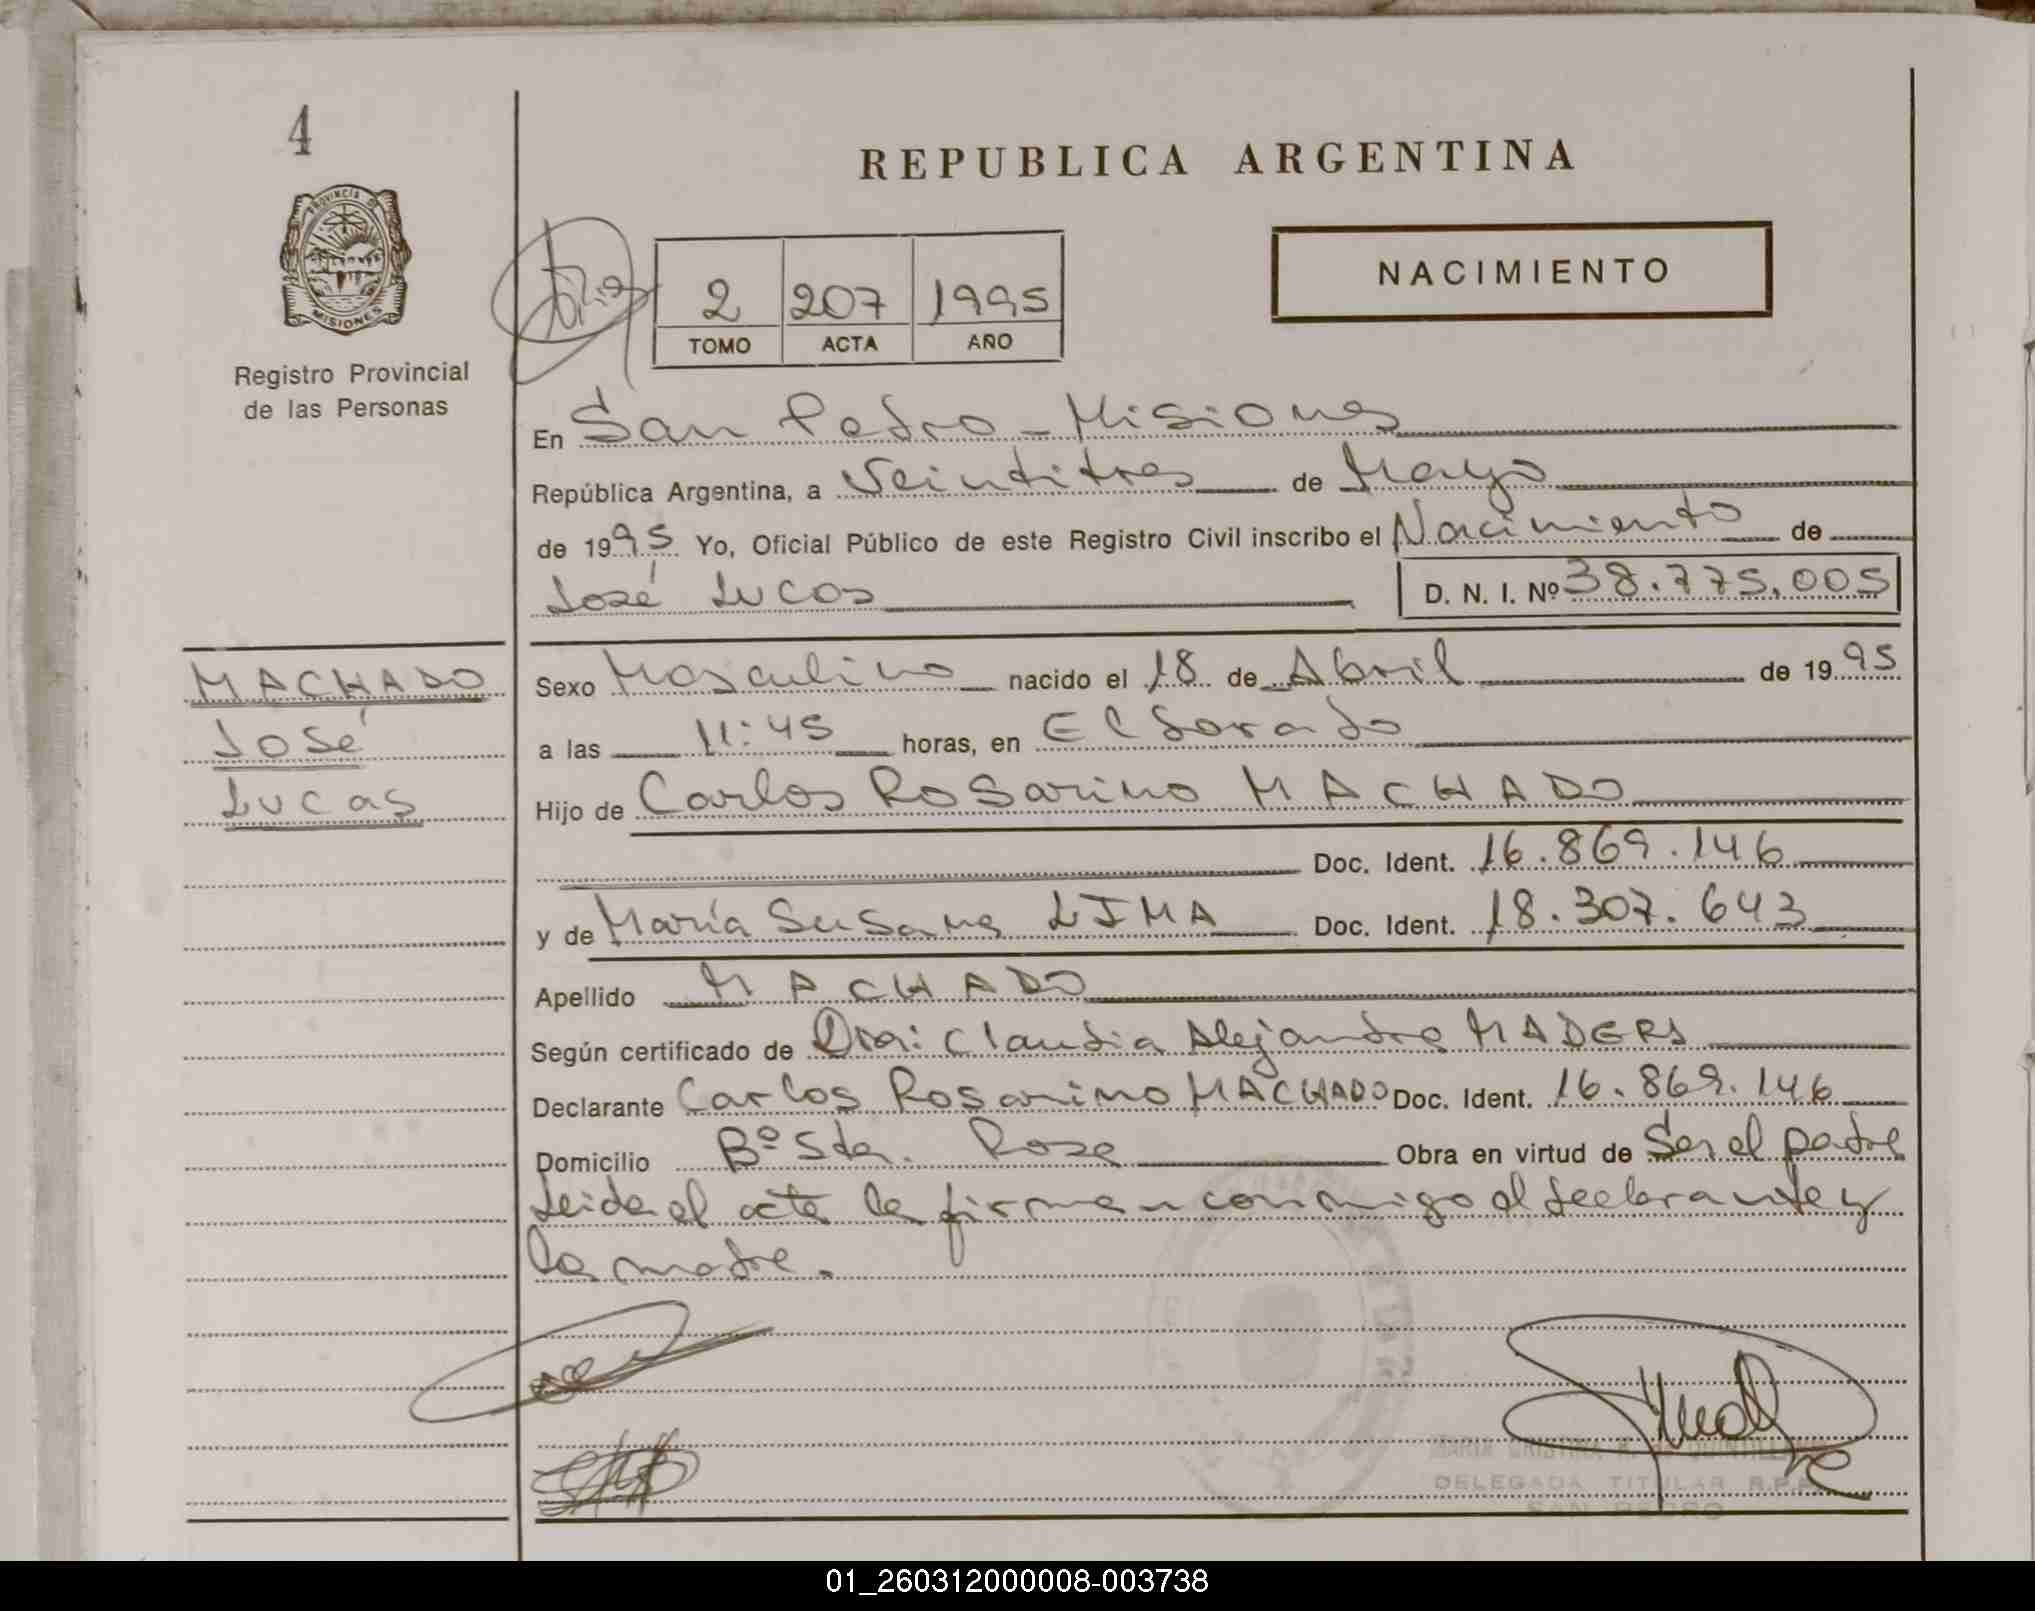 4
PROVINCIA DE
MISIONES
Registro Provincial
de las Personas
MACHADO
José
Lucas
REPUBLICA ARGENTINA
2 207 1995
TOMO ACTA AÑO
NACIMIENTO
En San Pedro - Misiones
República Argentina, a Veintitres de Mayo
de 1995 Yo, Oficial Público de este Registro Civil inscribo el Nacimiento de
José Lucas D. N. I. Nº 38.775.005
Sexo Masculino nacido el 18 de Abril de 1995
a las 11:45 horas, en Eldorado
Hijo de Carlos Rosarino MACHADO
Doc. Ident. 16.869.146
y de María Susana LIMA Doc. Ident. 18.307.643
Apellido MACHADO
Según certificado de Dra: Claudia Alejandra MADERS
Declarante Carlos Rosarino MACHADO Doc. Ident. 16.869.146
Domicilio Bº Sta. Rosa Obra en virtud de Ser el padre
Leida el acta la firman conmigo el declarante y
la madre.
MARIA CRISTINA
DELEGADA TITULAR R.P.P.
SAN PEDRO
01_260312000008-003738